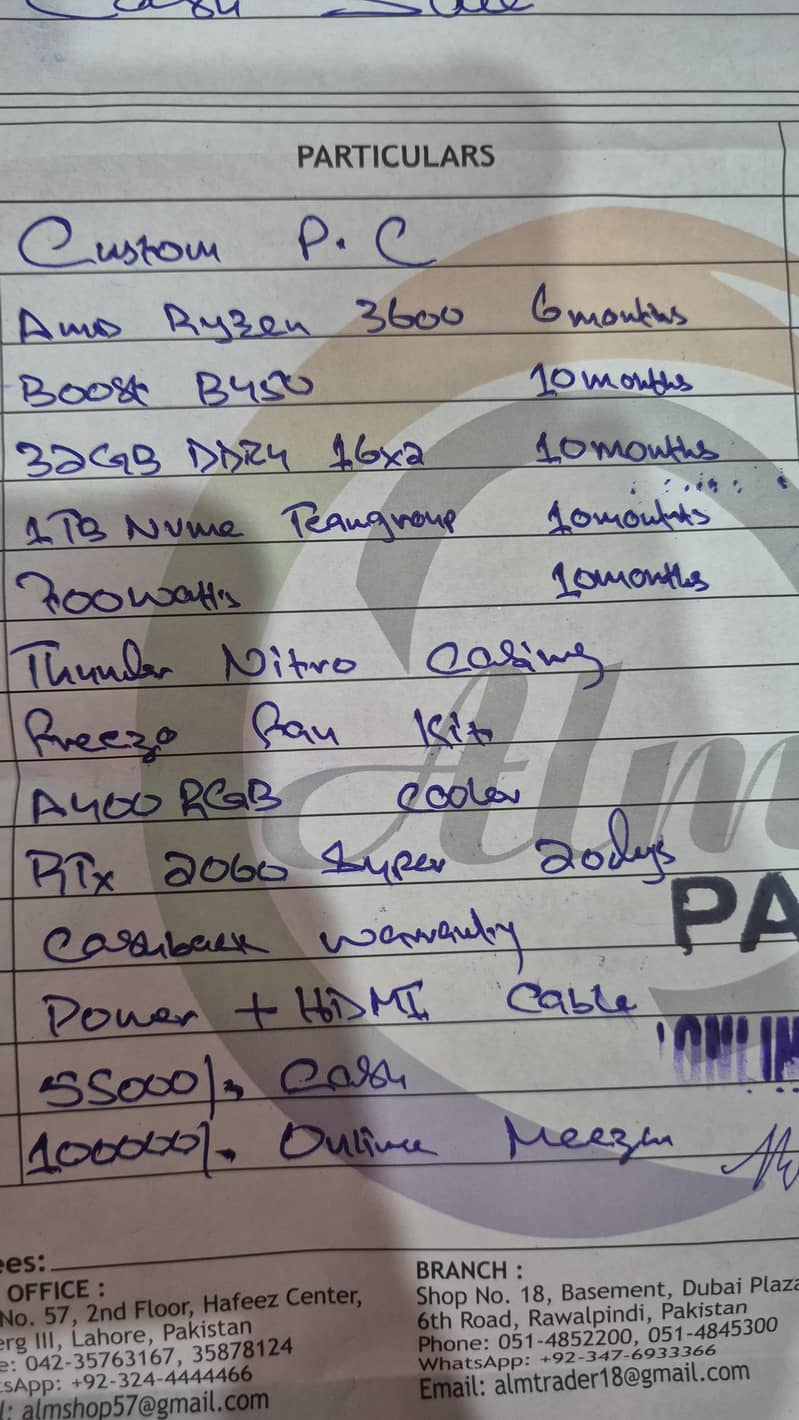 Cash Sale
PARTICULARS
Custom P.C
Amd Ryzen 3600 6 months
Boost B450 10 months
32GB DDR4 16x2 10 months
1TB Nvme Teamgroup 10 months
700 Watts 10 months
Thunder Nitro Casing
Freezo Fan Kit
A400 RGB Cooler
RTx 2060 Super 20 dys
Cashback warranty
Power + HDMI Cable
55000/- Cash
100000/- Online Meezan
Alm
PA
ONLIN
ees:
OFFICE :
No. 57, 2nd Floor, Hafeez Center,
erg III, Lahore, Pakistan
e: 042-35763167, 35878124
sApp: +92-324-4444466
l: almshop57@gmail.com
BRANCH :
Shop No. 18, Basement, Dubai Plaza
6th Road, Rawalpindi, Pakistan
Phone: 051-4852200, 051-4845300
WhatsApp: +92-347-6933366
Email: almtrader18@gmail.com